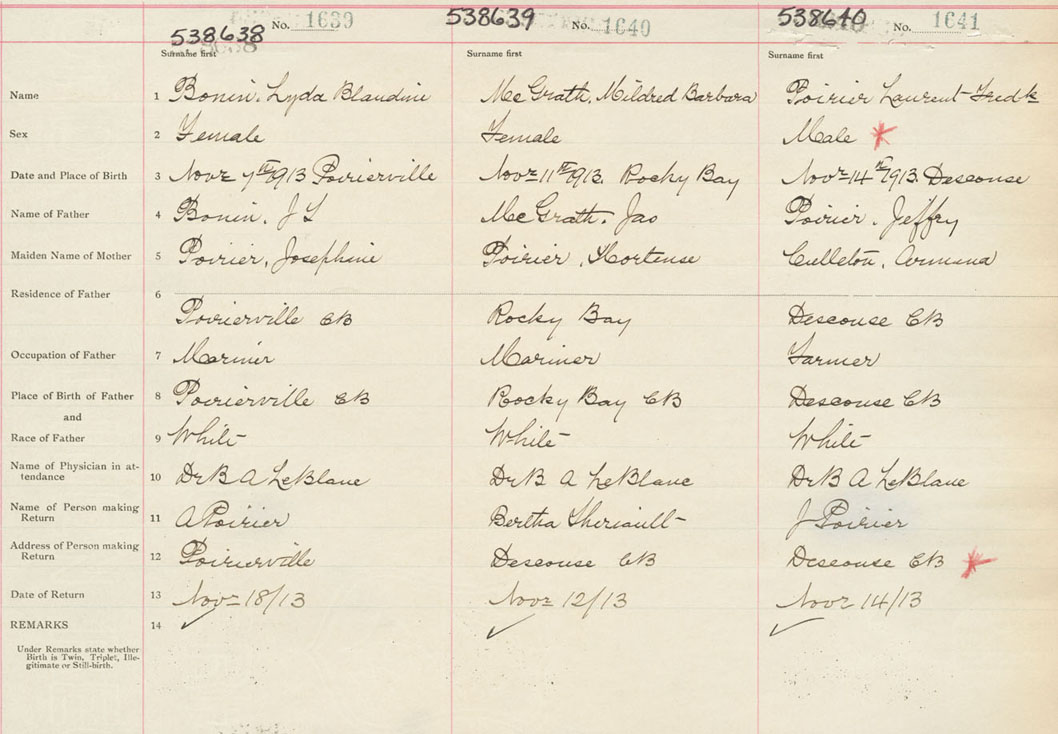 538638 No. 1639 538639 No. 1640 538640 No. 1641
Surname first Surname first Surname first
Name 1 Bonin, Lyda Blandine McGrath, Mildred Barbara Poirier Laurent Fredk
Sex 2 Female Female Male
Date and Place of Birth 3 Novr 7th 1913 Poirierville Novr 11th 1913. Rocky Bay Novr 14th 1913. Descouse
Name of Father 4 Bonin, J McGrath, Jas Poirier, Jeffry
Maiden Name of Mother 5 Poirier, Josephine Poirier, Hortense Culleton, Armana
Residence of Father 6
Poirierville CB Rocky Bay Descouse CB
Occupation of Father 7 Mariner Mariner Farmer
Place of Birth of Father 8 Poirierville CB Rocky Bay CB Descouse CB
and
Race of Father 9 White White White
Name of Physician in at-
tendance 10 Dr B A LeBlanc Dr B A LeBlanc Dr B A LeBlanc
Name of Person making
Return 11 A Poirier Bertha Theriault J Poirier
Address of Person making
Return 12 Poirierville Descouse CB Descouse CB
Date of Return 13 Novr 18/13 Novr 12/13 Novr 14/13
REMARKS 14
Under Remarks state whether
Birth is Twin, Triplet, Ille-
gitimate or Still-birth.